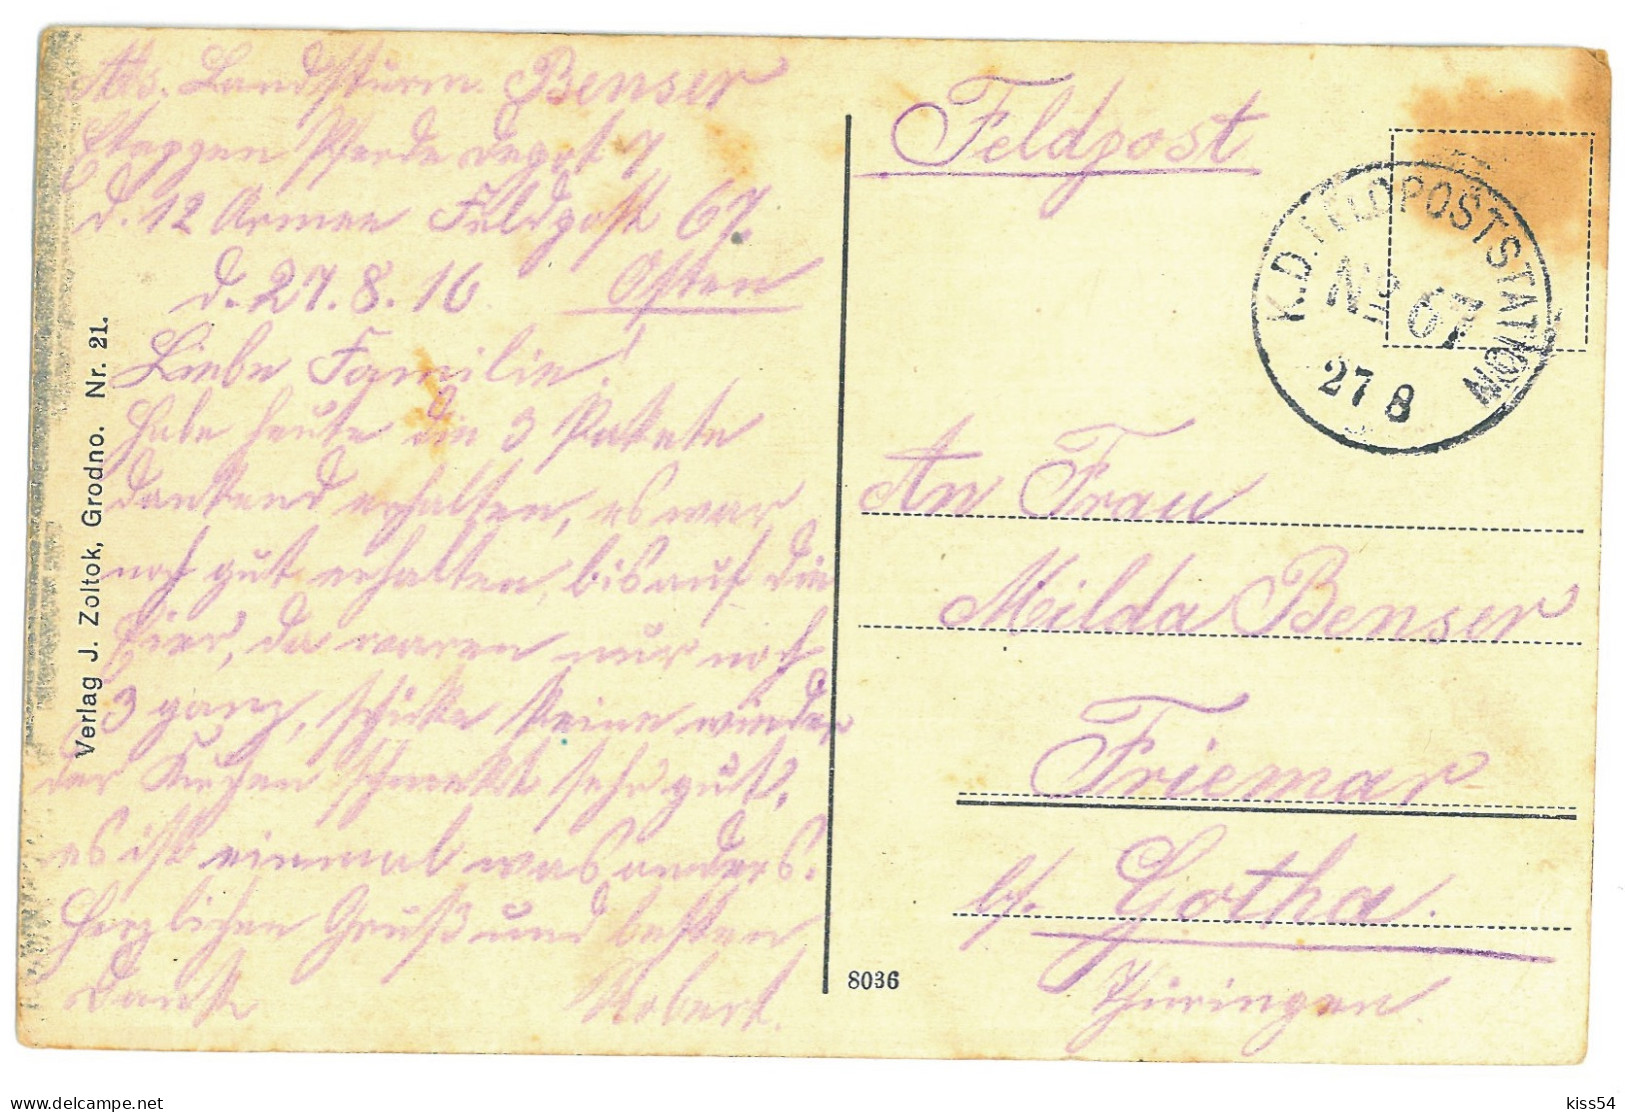 Abs. Landsturm. Benser
Etappen Pferde Depot 7
d. 12 Armee Feldpost 67.
d. 27.8.16 Osten
Liebe Familie!
Habe heute die 3 Pakete
dankend erhalten, es war
noch gut erhalten, bis auf die
Eier, da waren nur noch
3 ganz, schicke keine wieder
der Kuchen schmekt sehr gut,
es ist einmal was anders.
Herzlichen Gruß und besten
Dank Robert.
Verlag J. Zoltok, Grodno. Nr. 21.
Feldpost
K.D. FELDPOSTSTATION
No 67
27 8
An Frau
Milda Benser
Friemar
b/. Gotha.
Thüringen
8036
kiss54